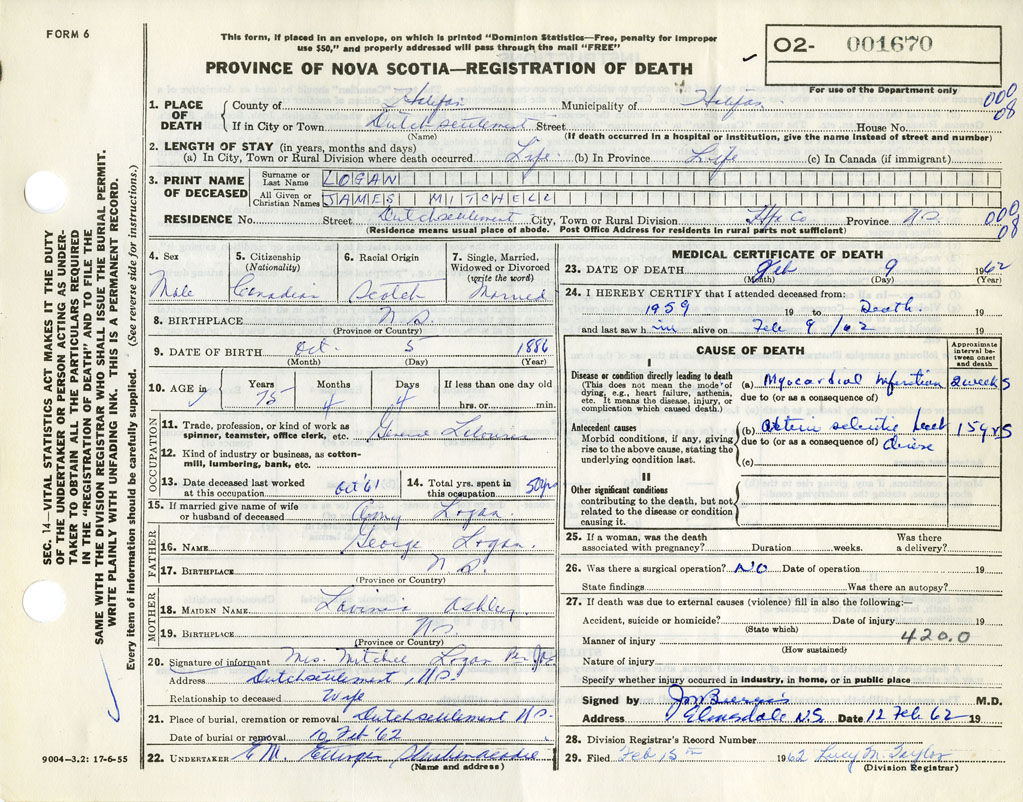 FORM 6
This form, if placed in an envelope, on which is printed "Dominion Statistics—Free, penalty for improper
use $50," and properly addressed will pass through the mail "FREE"
PROVINCE OF NOVA SCOTIA—REGISTRATION OF DEATH
02- 001670
For use of the Department only
1. PLACE OF DEATH
County of Halifax Municipality of Halifax
000
08
If in City or Town Dutch settlement Street House No.
(Name) (If death occurred in a hospital or institution, give the name instead of street and number)
2. LENGTH OF STAY (in years, months and days)
(a) In City, Town or Rural Division where death occurred Life (b) In Province Life (c) In Canada (if immigrant)
3. PRINT NAME OF DECEASED
Surname or Last Name LOGAN
All Given or Christian Names JAMES MITCHELL
RESIDENCE No. Street Dutch settlement City, Town or Rural Division Hfx Co Province N.S.
000
08
(Residence means usual place of abode. Post Office Address for residents in rural parts not sufficient)
4. Sex
Male
5. Citizenship
(Nationality)
Canadian
6. Racial Origin
Scotch
7. Single, Married,
Widowed or Divorced
(write the word)
Married
8. BIRTHPLACE N.S.
(Province or Country)
9. DATE OF BIRTH Oct. 5 1886
(Month) (Day) (Year)
10. AGE in Years 75 Months 4 Days 4 If less than one day old
hrs. or min.
OCCUPATION
11. Trade, profession, or kind of work as
spinner, teamster, office clerk, etc.
12. Kind of industry or business, as cotton-
mill, lumbering, bank, etc.
13. Date deceased last worked
at this occupation Oct '61
14. Total yrs. spent in
this occupation 50 yrs
15. If married give name of wife
or husband of deceased Logan
FATHER
16. NAME George Logan
17. BIRTHPLACE N.S.
(Province or Country)
MOTHER
18. MAIDEN NAME Lavinia Ashley
19. BIRTHPLACE N.S.
(Province or Country)
20. Signature of informant Mrs. Mitchell Logan Per
Address Dutch settlement, N.S.
Relationship to deceased Wife
21. Place of burial, cremation or removal Dutch settlement N.S.
Date of burial or removal 10 Feb '62
22. UNDERTAKER E.M. Ettinger Shubenacadie
(Name and address)
MEDICAL CERTIFICATE OF DEATH
23. DATE OF DEATH Feb 9 1962
(Month) (Day) (Year)
24. I HEREBY CERTIFY that I attended deceased from:
1959 19 to Death. 19
and last saw him alive on Feb 9 /62 19
CAUSE OF DEATH
Approximate
interval be-
tween onset
and death
I
Disease or condition directly leading to death
(This does not mean the mode of
dying, e.g., heart failure, asthenia,
etc. It means the disease, injury, or
complication which caused death.)
(a) Myocardial Infarction 2 weeks
due to (or as a consequence of)
Antecedent causes
Morbid conditions, if any, giving
rise to the above cause, stating the
underlying condition last.
(b) heart 15 yrs
due to (or as a consequence of) disease
(c)
II
Other significant conditions
contributing to the death, but not
related to the disease or condition
causing it.
25. If a woman, was the death Was there
associated with pregnancy? Duration weeks. a delivery?
26. Was there a surgical operation? NO Date of operation 19
State findings Was there an autopsy?
27. If death was due to external causes (violence) fill in also the following:—
Accident, suicide or homicide? Date of injury 19
(State which)
420.0
Manner of injury
(How sustained)
Nature of injury
Specify whether injury occurred in industry, in home, or in public place
Signed by M.D.
Address Elmsdale N.S. Date 12 Feb 62 19
28. Division Registrar's Record Number
29. Filed Feb 15th 1962 Lucy M. Taylor
(Division Registrar)
SEC. 14—VITAL STATISTICS ACT MAKES IT THE DUTY
OF THE UNDERTAKER OR PERSON ACTING AS UNDER-
TAKER TO OBTAIN ALL THE PARTICULARS REQUIRED
IN THE "REGISTRATION OF DEATH" AND TO FILE THE
SAME WITH THE DIVISION REGISTRAR WHO SHALL ISSUE THE BURIAL PERMIT.
WRITE PLAINLY WITH UNFADING INK. THIS IS A PERMANENT RECORD.
Every item of information should be carefully supplied. (See reverse side for instructions.)
9004—3.2: 17-6-55